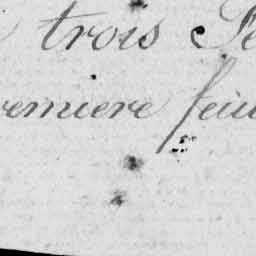 trois
remiere feui